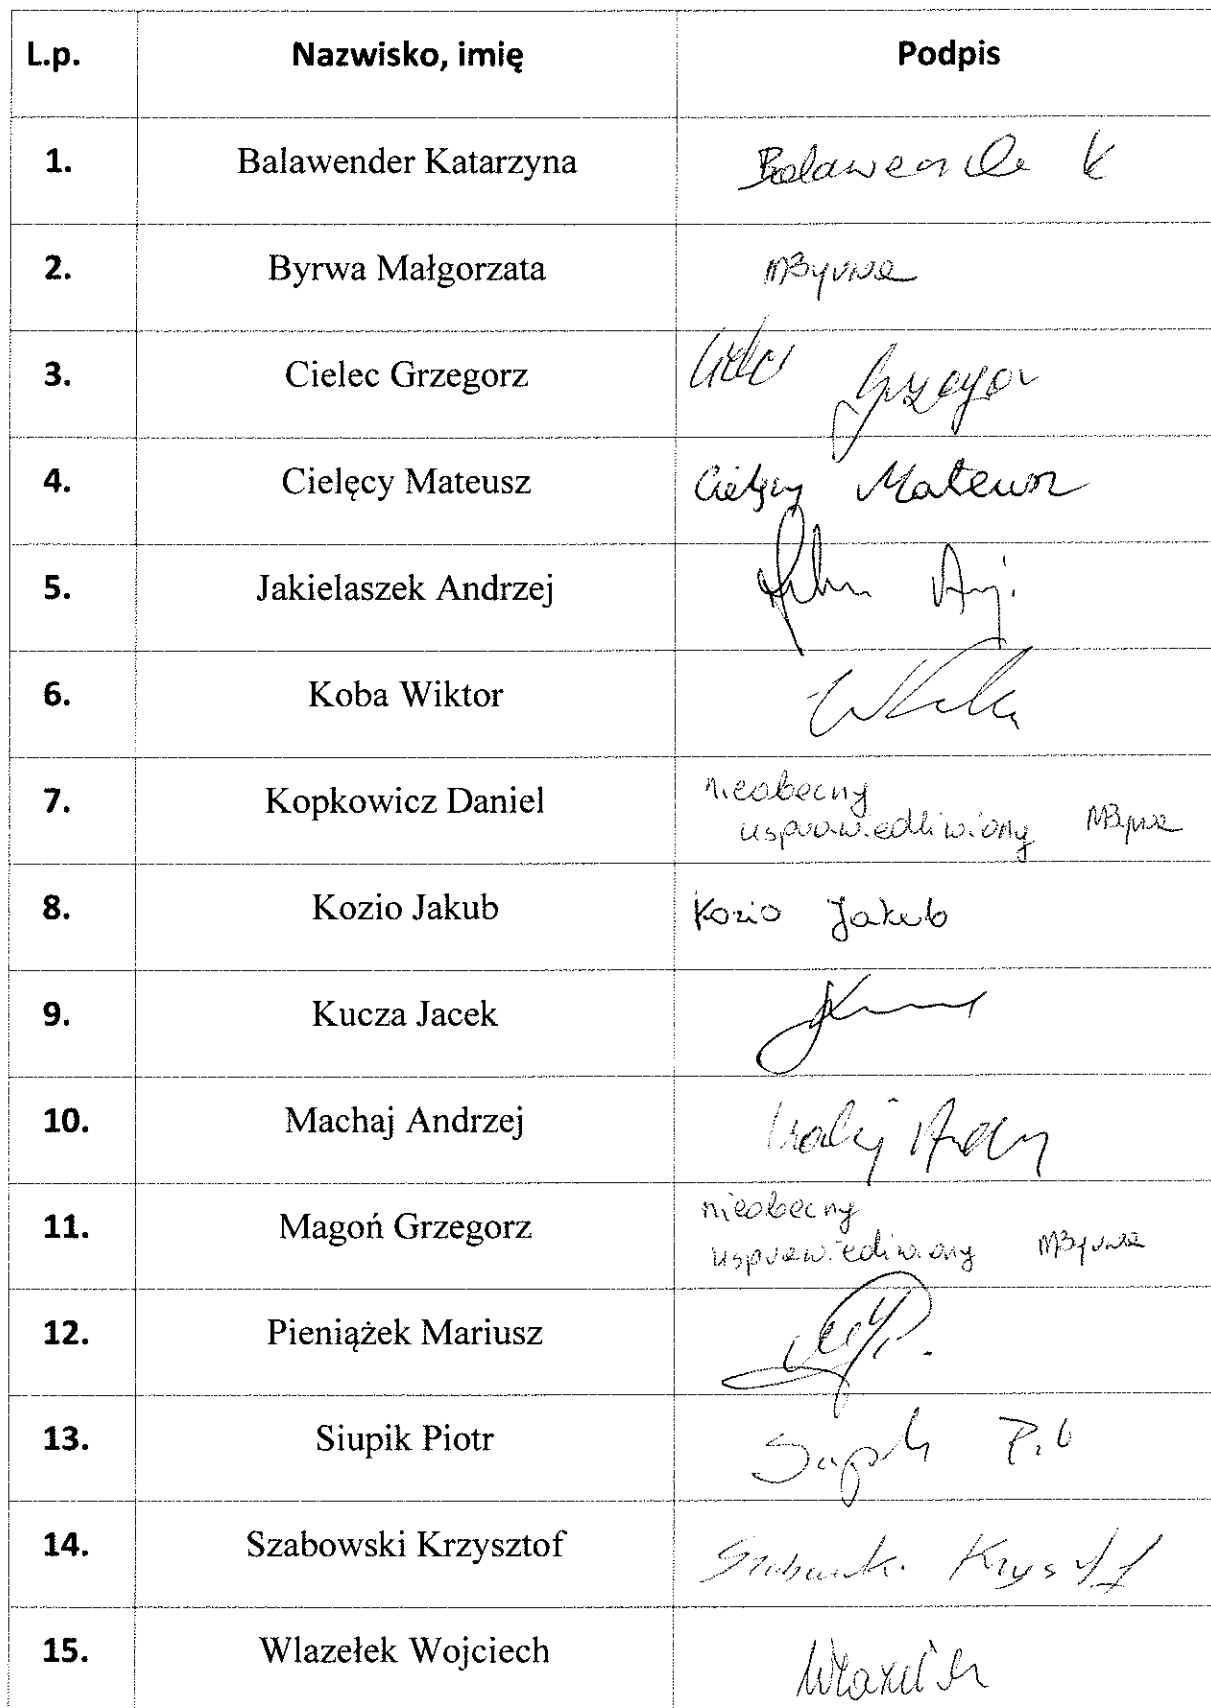 L.p. Nazwisko, imię Podpis
1. Balawender Katarzyna Balawender K
2. Byrwa Małgorzata MByrwa
3. Cielec Grzegorz Cielec Grzegorz
4. Cielęcy Mateusz Cielęcy Mateusz
5. Jakielaszek Andrzej
6. Koba Wiktor
7. Kopkowicz Daniel nieobecny
usprawiedliwiony MByrwa
8. Kozio Jakub Kozio Jakub
9. Kucza Jacek
10. Machaj Andrzej
11. Magoń Grzegorz nieobecny
usprawiedliwiony MByrwa
12. Pieniążek Mariusz
13. Siupik Piotr
14. Szabowski Krzysztof
15. Wlazełek Wojciech